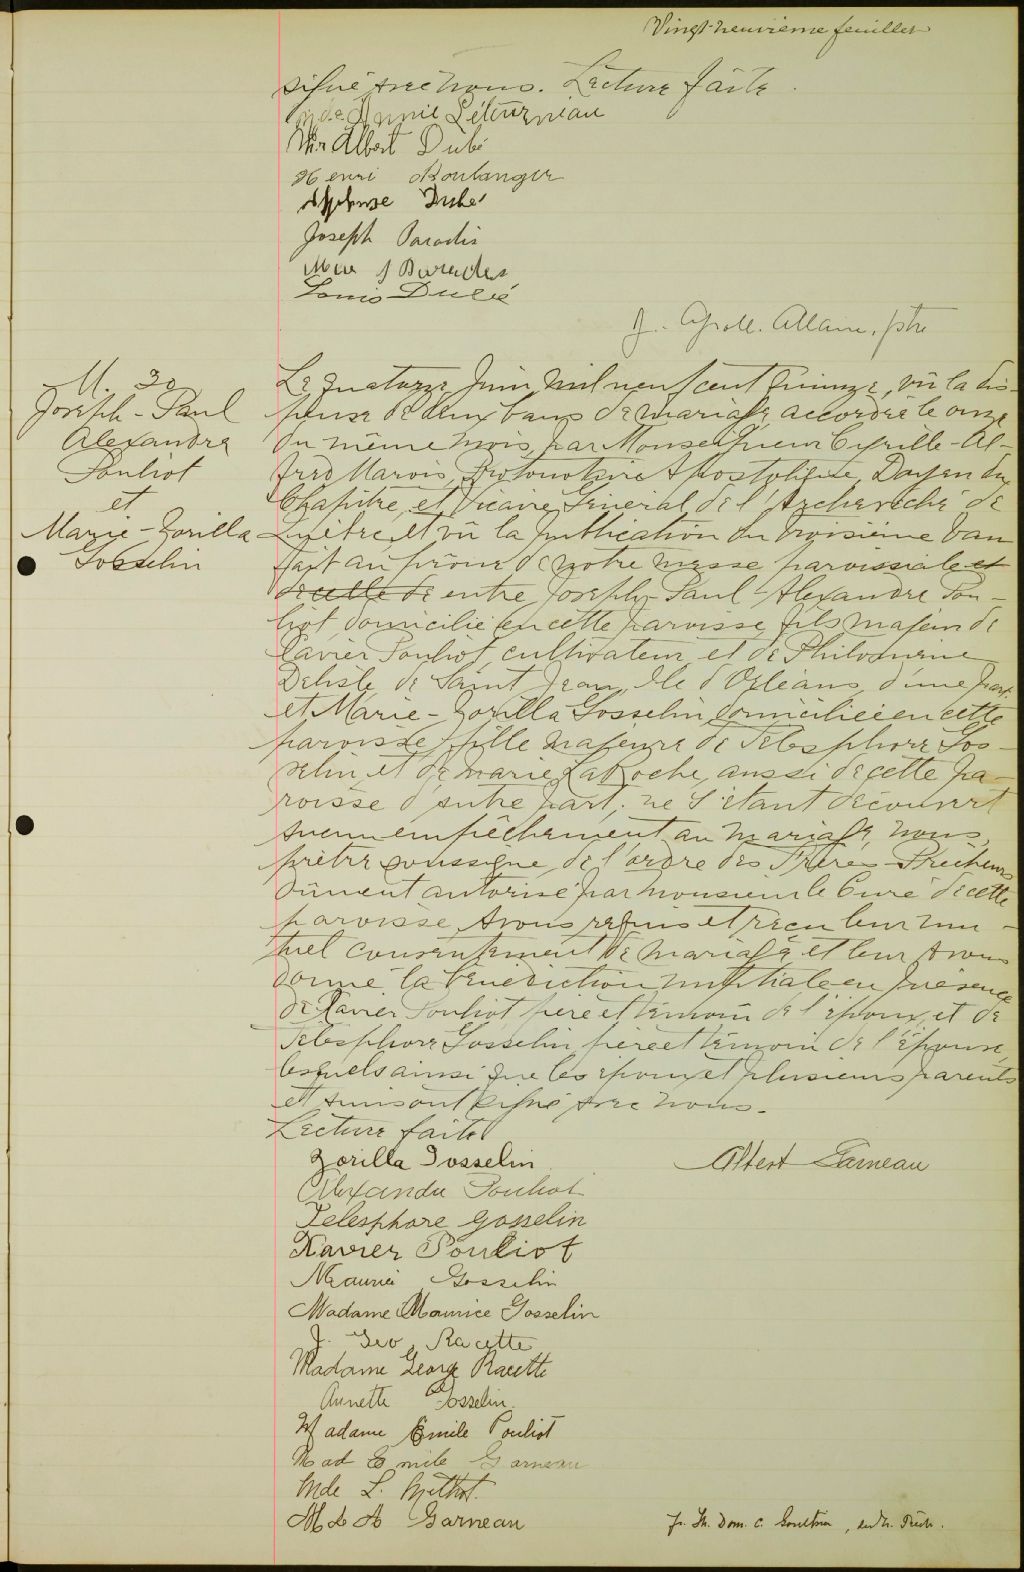 Vingt-neuvième feuillet
signé avec nous. Lecture faite
Mde Annie Létourneau
Mr Albert Dubé
Henri Boulanger
Alphonse Dubé
Joseph Paradis
Mme J Paradis
Louis Dubé
J. Apoll. Allaire, ptre
M. 30
Joseph-Paul
Alexandre
Pouliot
et
Marie-Zorilla
Gosselin
Le quatorze Juin mil neuf cent quinze, vû la dis-
pense de deux bans de mariage accordée le onze
du même mois par Monseigneur Cyrille-Al-
fred Marois, Protonotaire Apostolique, Doyen du
Chapitre, et Vicaire Général de l'Archevêché de
Québec, et vû la publication du troisième ban
fait au prône de notre messe paroissiale et
de celle de entre Joseph-Paul-Alexandre Pou-
liot, domicilié en cette paroisse, fils majeur de
Xavier Pouliot, cultivateur, et de Philomène
Delisle de Saint Jean, Ile d'Orléans, d'une part
et Marie-Zorilla Gosselin domiciliée en cette
paroisse, fille majeure de Télesphore Gos-
selin et de Marie LaRoche, aussi de cette pa-
roisse d'autre part; ne s'étant découvert
aucun empêchement au mariage, nous,
prêtre soussigné, de l'ordre des Frères-Prêcheurs
dûment autorisé par monsieur le Curé de cette
paroisse, avons requis et reçu leur mu-
tuel consentement de mariage et leur avons
donné la bénédiction nuptiale en présence
de Xavier Pouliot, père et témoin de l'époux, et de
Télesphore Gosselin, père et témoin de l'épouse,
lesquels ainsi que les époux et plusieurs parents
et amis ont signé avec nous.
Lecture faite
Zorilla Gosselin
Albert Garneau
Alexandre Pouliot
Telesphore Gosselin
Xavier Pouliot
Maurice Gosselin
Madame Maurice Gosselin
J. Geo. Racette
Madame George Racette
Annette Gosselin
Madame Emile Pouliot
Mad Emile Garneau
Mde L. Methot.
Garneau
fr. Th. Dom. C.